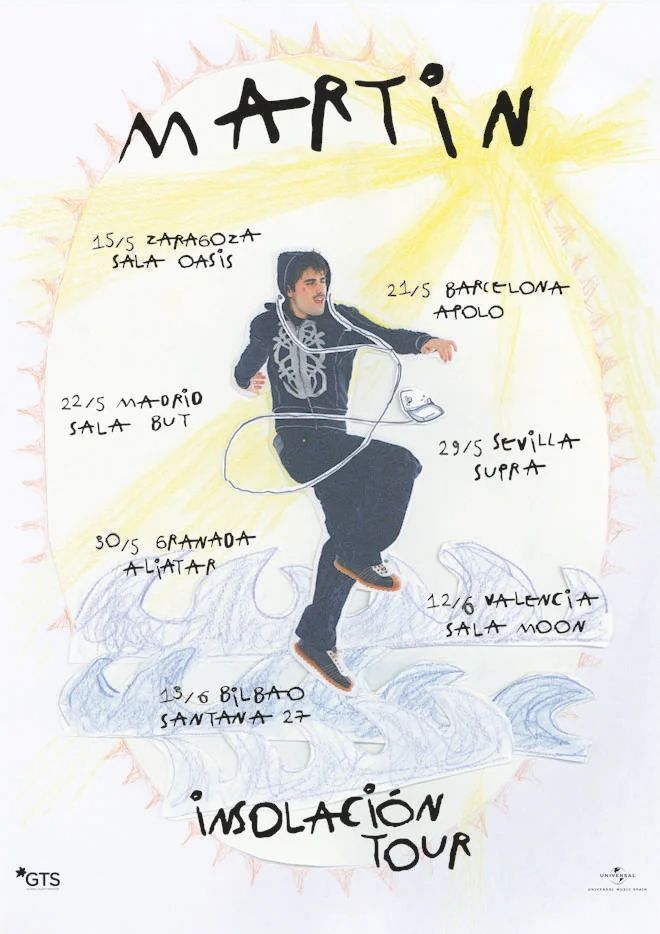 MARTiN
15/5 ZARAGOZA
SALA OASiS
21/5 BARCELONA
APOLO
22/5 MADRiD
SALA BUT
29/5 SEViLLA
SUPRA
30/5 GRANADA
ALiATAR
12/6 VALENCiA
SALA MOON
13/6 BiLBAO
SANTANA 27
iNSOLACiÓN
TOUR
*GTS
UNIVERSAL
UNIVERSAL MUSIC SPAIN